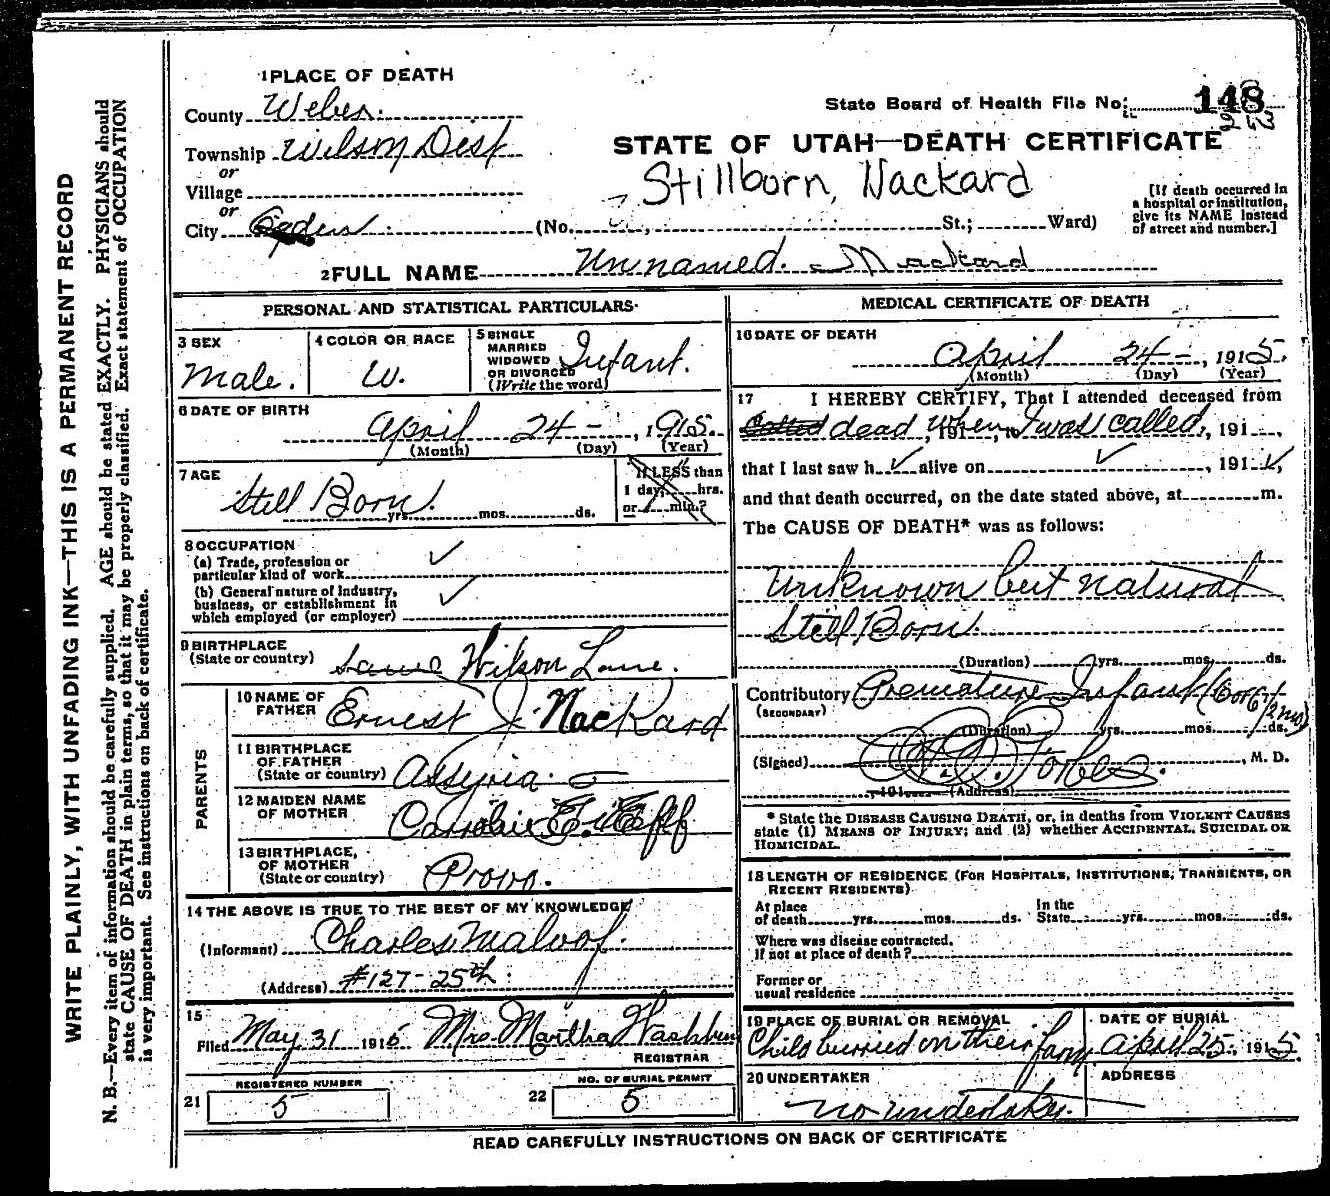 1 PLACE OF DEATH
County Weber.
State Board of Health File No. 148
Township Wilson Dist
or
STATE OF UTAH—DEATH CERTIFICATE
Village
Stillborn, Nackard
or
City Ogden (No. St.; Ward)
[If death occurred in
a hospital or institution,
give its NAME instead
of street and number.]
2 FULL NAME Unnamed. Mackard
PERSONAL AND STATISTICAL PARTICULARS
3 SEX
Male.
4 COLOR OR RACE
W.
5 SINGLE
MARRIED
WIDOWED
OR DIVORCED
(Write the word)
Infant.
6 DATE OF BIRTH
April 24 - , 1915.
(Month) (Day) (Year)
7 AGE
Still Born.
yrs. mos. ds.
If LESS than
1 day, hrs.
or min.?
8 OCCUPATION
(a) Trade, profession or
particular kind of work
(b) General nature of industry,
business, or establishment in
which employed (or employer)
9 BIRTHPLACE
(State or country) Wilson Lane.
PARENTS
10 NAME OF
FATHER Ernest J. Nackard
11 BIRTHPLACE
OF FATHER
(State or country) Assyria.
12 MAIDEN NAME
OF MOTHER
13 BIRTHPLACE,
OF MOTHER
(State or country) Provo.
14 THE ABOVE IS TRUE TO THE BEST OF MY KNOWLEDGE
(Informant) Charles Maloof.
(Address) #127-25th.
15
Filed May 31 1915 Mrs. Martha Washburn
REGISTRAR
21 REGISTERED NUMBER
5
22 NO. OF BURIAL PERMIT
5
MEDICAL CERTIFICATE OF DEATH
16 DATE OF DEATH
April 24 - , 1915.
(Month) (Day) (Year)
17 I HEREBY CERTIFY, That I attended deceased from
Called dead , 191 When I was called, 191
that I last saw h alive on , 191
and that death occurred, on the date stated above, at m.
The CAUSE OF DEATH* was as follows:
Unknown but natural
Still Born.
(Duration) yrs. mos. ds.
Contributory Premature Infant (6 or 6 1/2 mo)
(SECONDARY)
(Duration) yrs. mos. ds.
(Signed) Forbes. , M. D.
, 191 (Address)
* State the DISEASE CAUSING DEATH, or, in deaths from VIOLENT CAUSES
state (1) MEANS OF INJURY; and (2) whether ACCIDENTAL, SUICIDAL OR
HOMICIDAL.
18 LENGTH OF RESIDENCE (FOR HOSPITALS, INSTITUTIONS, TRANSIENTS, OR
RECENT RESIDENTS)
At place
of death yrs. mos. ds.
In the
State yrs. mos. ds.
Where was disease contracted.
If not at place of death?
Former or
usual residence
19 PLACE OF BURIAL OR REMOVAL
Child burried on their farm
DATE OF BURIAL
April 25, 1915.
20 UNDERTAKER
no undertaker.
ADDRESS
READ CAREFULLY INSTRUCTIONS ON BACK OF CERTIFICATE
WRITE PLAINLY, WITH UNFADING INK—THIS IS A PERMANENT RECORD
N. B.—Every item of information should be carefully supplied. AGE should be stated EXACTLY. PHYSICIANS should
state CAUSE OF DEATH in plain terms, so that it may be properly classified. Exact statement of OCCUPATION
is very important. See instructions on back of certificate.